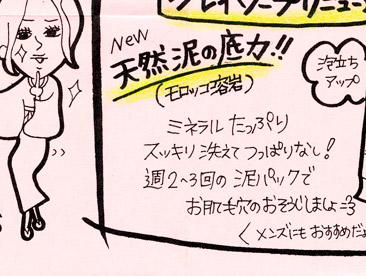 クレイソープリニュー
New
天然泥の底力!!
(モロッコ溶岩)
泡立ち
アップ
ミネラル たっぷり
スッキリ洗えてつっぱりなし!
週2~3回の泥パックで
お肌毛穴のおそうじしましょ=3
く メンズにもおすすめだよ